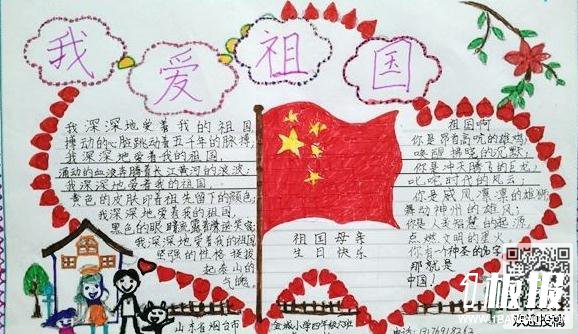 我爱祖国
我深深地爱着我的祖国,
搏动的心脏跳动着五千年的脉搏;
我深深地爱着我的祖国,
涌动的血液奔腾着长江黄河的浪波;
我深深地爱着我的祖国,
黄色的皮肤印着祖先留下的颜色;
我深深地爱着我的祖国,
黑色的眼睛
我深深地爱着我的祖国
坚强的性格挺拔
起泰山的
气魄
祖国母亲
生日快乐
祖国啊
你是昂着高吭的雄鸡,
唤醒拂晓的沉默;
你是冲天腾飞的巨龙,
叱咤时代的风云;
你是威风凛凛的雄狮,
舞动神州的雄风;
你是人类智慧的起源,
点燃文明的星火
你有个神圣的名字,
那就是
中国!
山东省烟台市
金城小学四年级
板报